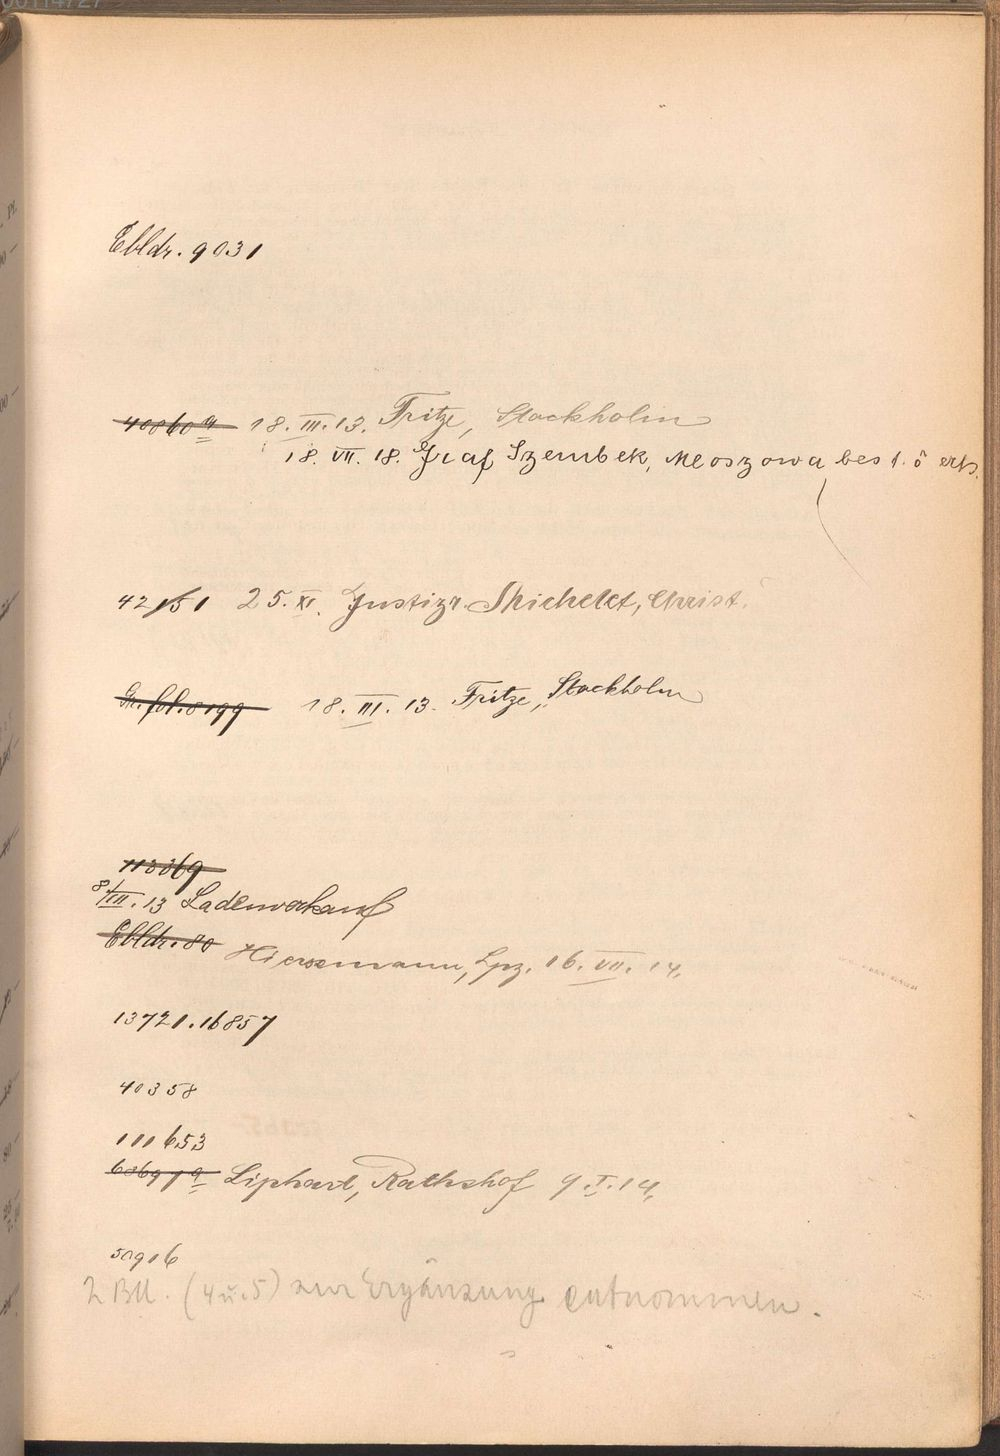 Ebldr. 9031
40860a 18. III. 13. Fritze, Stockholm
18. VII. 18. Graf Szembek, Mloszowa, best. ö erh.
42151 25. XI. Justizr. Michelet, Christ.
Gr. fol. 8199 18. III. 13. Fritze, Stockholm
113369
8/III. 13 Ladenverkauf
Ebldr. 80 Hiersemann, Lpz. 16. VII. 14.
13721. 16857
40358
111653
68697a Liphart, Rathshof 9. I. 14.
50916
2 Bll. (4 u. 5) zur Ergänzung entnommen.